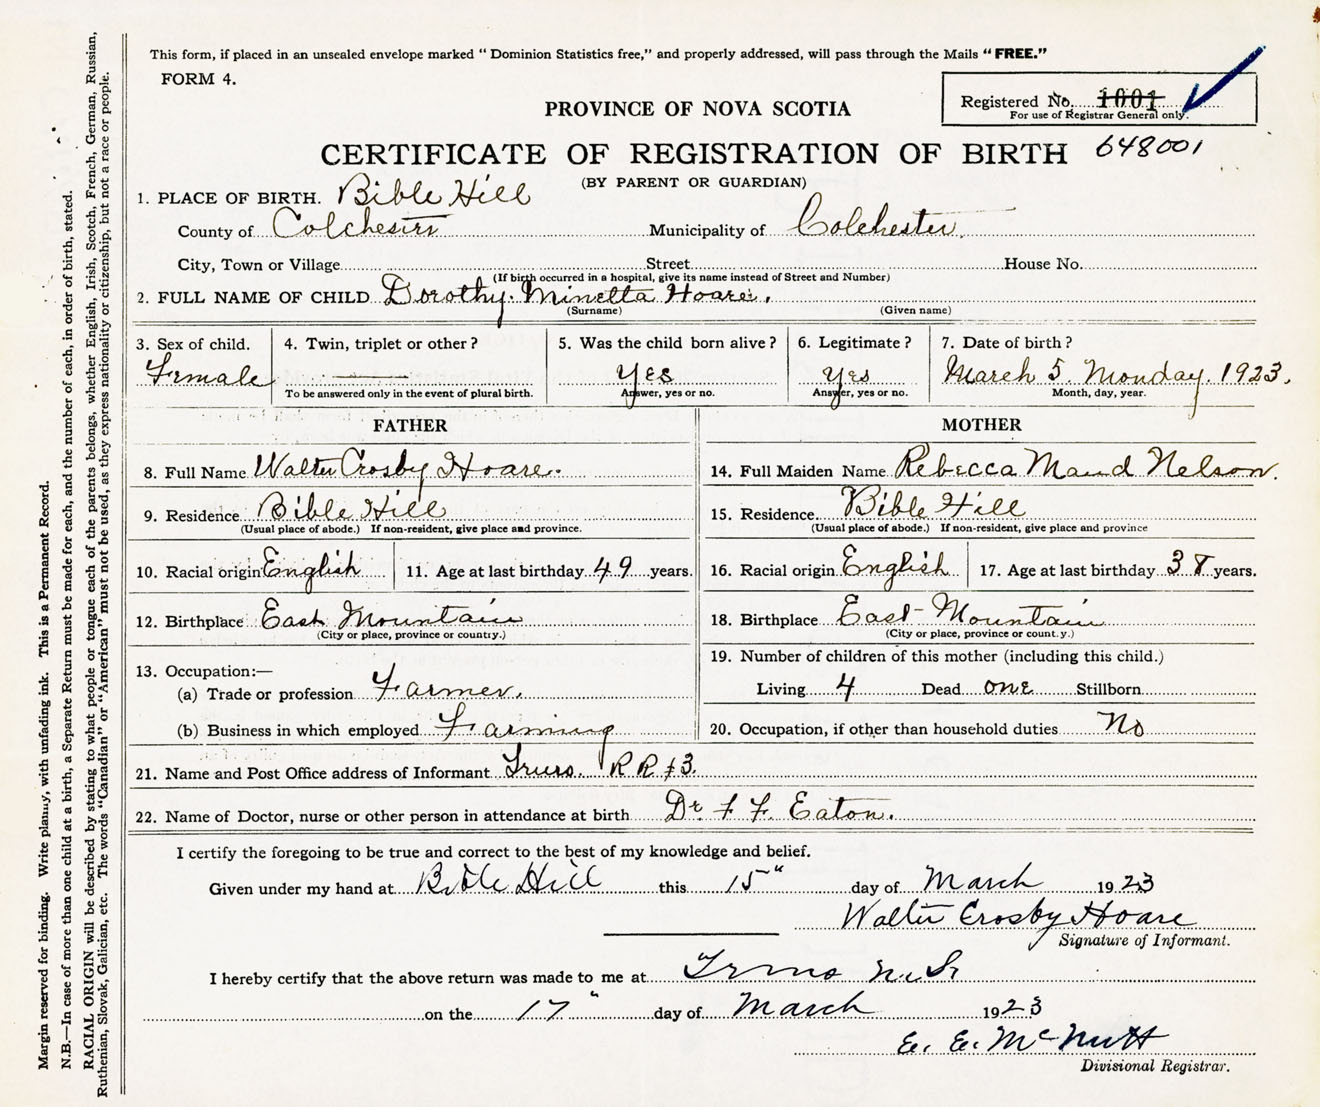 This form, if placed in an unsealed envelope marked " Dominion Statistics free," and properly addressed, will pass through the Mails "FREE."
FORM 4.
Registered No. 1001
For use of Registrar General only.
PROVINCE OF NOVA SCOTIA
CERTIFICATE OF REGISTRATION OF BIRTH 648001
(BY PARENT OR GUARDIAN)
1. PLACE OF BIRTH. Bible Hill
County of Colchester Municipality of Colchester
City, Town or Village Street House No.
(If birth occurred in a hospital, give its name instead of Street and Number)
2. FULL NAME OF CHILD Dorothy. Minetta Hoare.
(Surname) (Given name)
3. Sex of child. 4. Twin, triplet or other ? 5. Was the child born alive ? 6. Legitimate ? 7. Date of birth ?
Female Yes Yes March 5. Monday. 1923.
To be answered only in the event of plural birth. Answer, yes or no. Answer, yes or no. Month, day, year.
FATHER MOTHER
8. Full Name Walter Crosby Hoare. 14. Full Maiden Name Rebecca Maud Nelson.
9. Residence Bible Hill 15. Residence Bible Hill
(Usual place of abode.) If non-resident, give place and province. (Usual place of abode.) If non-resident, give place and province
10. Racial origin English 11. Age at last birthday 49 years. 16. Racial origin English 17. Age at last birthday 38 years.
12. Birthplace East Mountain 18. Birthplace East Mountain
(City or place, province or country.) (City or place, province or country.)
13. Occupation:— 19. Number of children of this mother (including this child.)
(a) Trade or profession Farmer. Living 4 Dead one Stillborn
(b) Business in which employed Farming 20. Occupation, if other than household duties No
21. Name and Post Office address of Informant Truro. RR #3.
22. Name of Doctor, nurse or other person in attendance at birth Dr. F F. Eaton.
I certify the foregoing to be true and correct to the best of my knowledge and belief.
Given under my hand at Bible Hill this 15" day of March 1923
Walter Crosby Hoare
Signature of Informant.
I hereby certify that the above return was made to me at Truro N.S.
on the 17" day of March 1923
E. E. McNutt
Divisional Registrar.
Margin reserved for binding. Write plainly, with unfading ink. This is a Permanent Record.
N.B.—In case of more than one child at a birth, a Separate Return must be made for each, and the number of each, in order of birth, stated.
RACIAL ORIGIN will be described by stating to what people or tongue each of the parents belongs, whether English, Irish, Scotch, French, German, Russian,
Ruthenian, Slovak, Galician, etc. The words "Canadian" or "American" must not be used, as they express nationality or citizenship, but not a race or people.